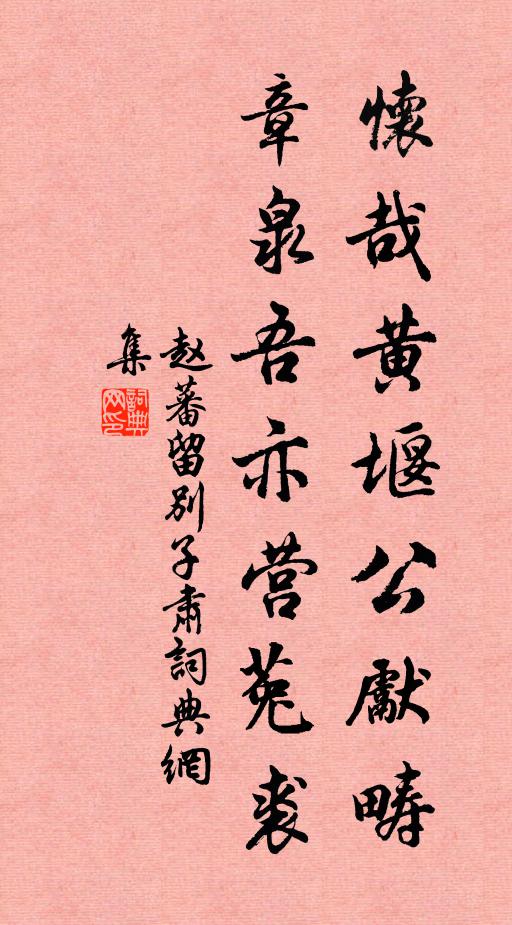 懷哉黃堰公獻畴
章泉吾亦营菟裘
赵蕃留别子肅詞典網
集
詞典網印